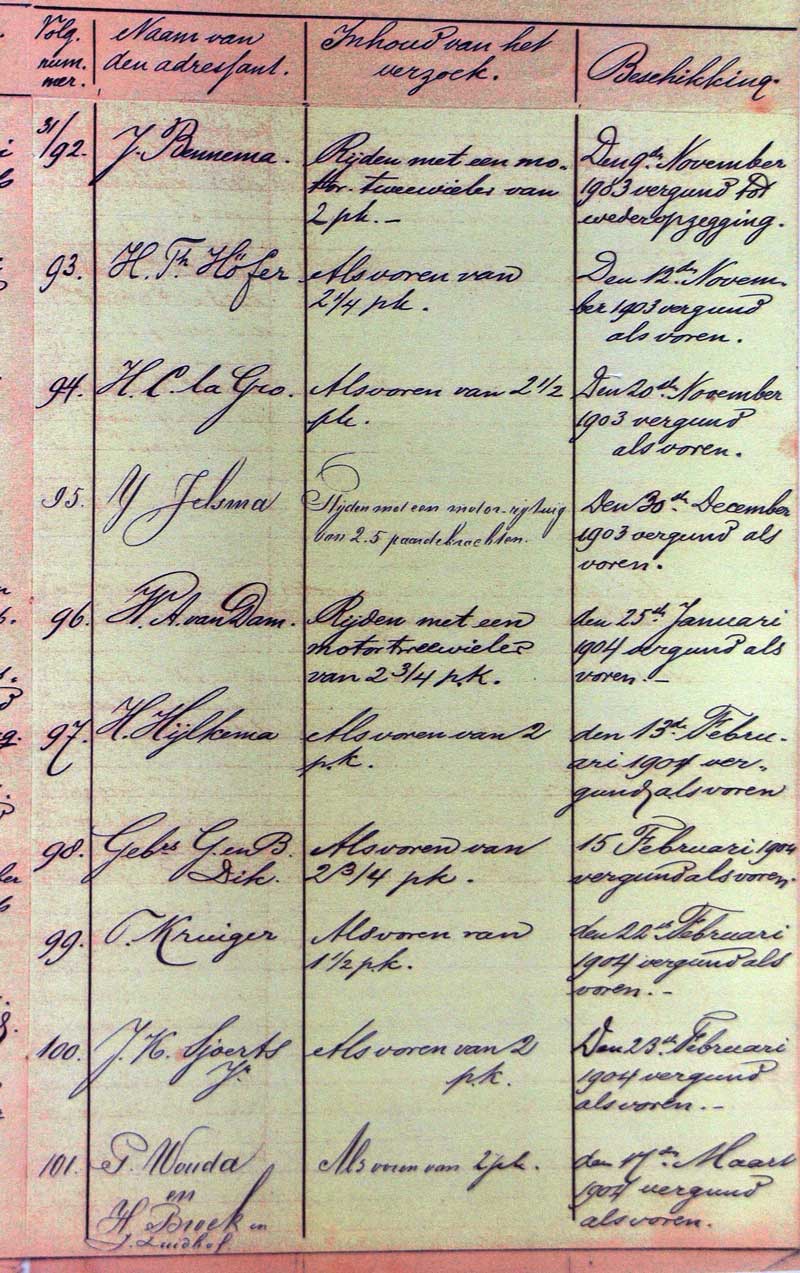 Volg. num. mer.
Naam van den adressant.
Inhoud van het verzoek.
Beschikking.
31/92.
J. Bennema.
Rijden met een mo-
tor-tweewieler van
2 pk. -
Den 9de November
1903 vergund tot
wederopzegging.
93.
H. Th. Höfer
Als voren van
2 1/4 pk.
Den 12de Novem-
ber 1903 vergund
als voren.
94.
H. C. la Gro.
Als voren van 2 1/2
pk.
Den 20ste November
1903 vergund
als voren.
95.
Y Jelsma
Rijden met een motor-rijtuig
van 2.5 paardekrachten.
Den 30ste December
1903 vergund als
voren.
96.
W. A. van Dam.
Rijden met een
motortweewieler
van 2 3/4 p.k.
den 25ste Januari
1904 vergund als
voren. -
97.
H. Hijlkema
Als voren van 2
p.k.
den 13de Febru-
ari 1904 ver-
gund als voren
98.
Gebrs G. en B.
Dik.
Als voren van
2 3/4 pk.
15 Februari 1904
vergund als voren.
99.
T. Kruiger
Als voren van
1 1/2 p.k.
den 22ste Februari
1904 vergund als
voren. -
100.
J. K. Sjoerts
Jr.
Als voren van 2
p.k.
Den 23ste Februari
1904 vergund
als voren. -
101.
P. Wouda
en
H. Broek en
J. Zuidhof
Als voren van 2 pk.
den 17de Maart
1904 vergund
als voren.